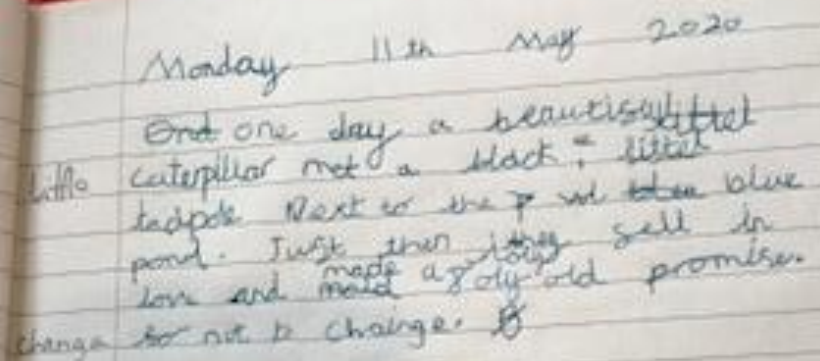 Monday 11th May 2020
And one day a beautisul littel
little caterpillar met a black littel
tadpole Next to the blue
pond. Just then they sell in
made
love and maid a old promise.
change to not b chainge.